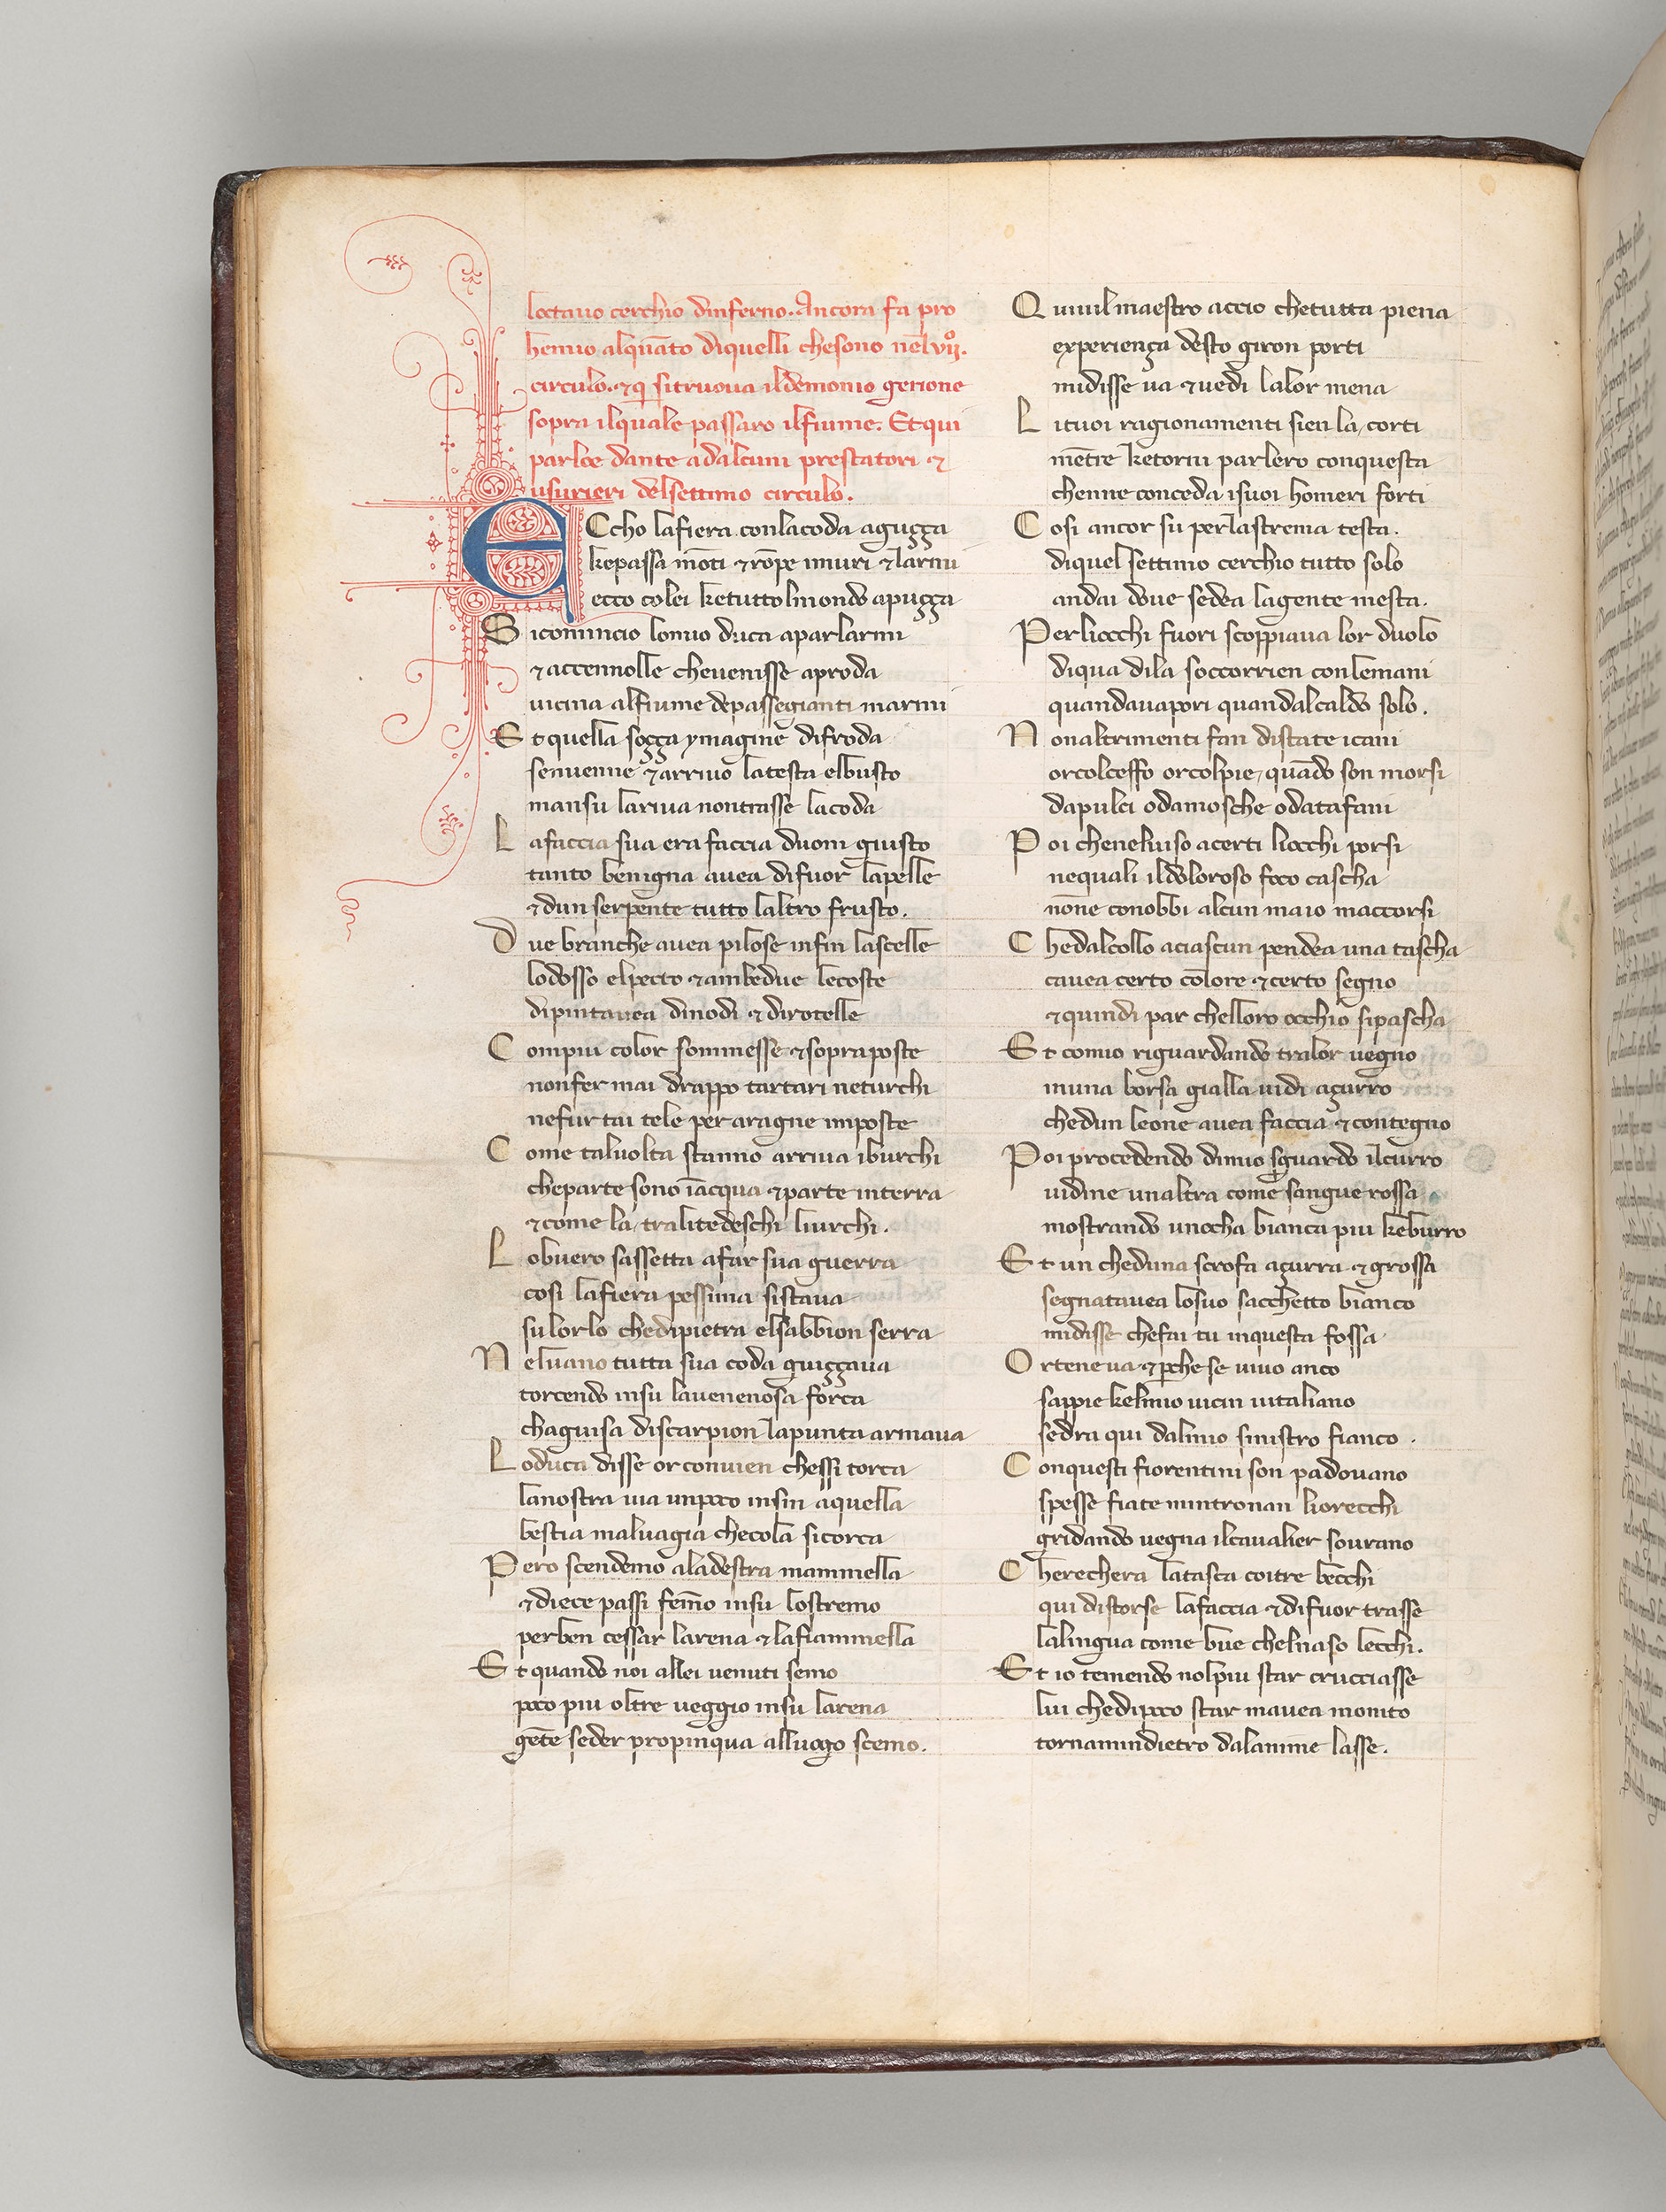 loctauo cerchio dinferno. Ancora fa pro
hemio alquãto diquelli chesono nel vijº.
circulo. ⁊ q̃ sitruoua ildemonio gerione
sopra ilquale passaro ilfiume. Et qui
parloe dante adalcuni prestatori ⁊
usurieri delsettimo circulo.
ECcho lafiera conlacoda aguçça
kepassa mõti ⁊ rõpe imuri ⁊ larmi
ecco colei ketuttolmondo apuçça
Sicomincio lomio duca aparlarmi
⁊ accennolle cheuenisse aproda
uicina alfiume depassegianti marmi
Et quella soçça ymagine difroda
senuenne ⁊ arriuo latesta elbusto
mansu lariua nontrasse lacoda
Lafaccia sua era faccia duom giusto
tanto benigna auea difuor lapelle
⁊ dun serpente tutto laltro fusto.
Due branche auea pilose infin lascelle
lodosso elpecto ⁊ ambedue lecoste
dipintauea dinodi ⁊ dirotelle
Compiu color sommesse ⁊ sopraposte
nonfer mai drappo tartari neturchi
nefur tai tele per aragne imposte
Come taluolta stanno arriua iburchi
cheparte sono ĩacqua ⁊ parte interra
⁊ come la tralitedeschi lurchi.
Lobuero sassetta afar sua guerra
cosi lafiera pessima sistaua
sulorlo chedipietra elsabbion serra
Neluano tutta sua coda guiççaua
torcendo insu lauenenosa forca
chaguisa discarpion lapunta armaua
Loduca disse or conuien chessi torca
lanostra uia unpoco infin aquella
bestia maluagia checola sicorca
Pero scendemo aladestra mammella
⁊ diece passi femo insu lostremo
perben cessar larena ⁊ lafiammella
Et quando noi allei uenuti semo
poco piu oltre ueggio insu larena
gẽte seder propinqua alluogo scemo.
Quiuilmaestro accio chetutta piena
experiença desto giron porti
midisse ua ⁊ uedi lalor mena
Lituoi ragionamenti sien la corti
mẽtre ketorni parlero conquesta
chenne conceda isuoi homeri forti
Cosi ancor su perlastrema testa.
diquel settimo cerchio tutto solo
andai doue sedea lagente mesta.
Perliocchi fuori scoppiaua lor duolo
diqua dila soccorrien conlemani
quandauapori quandalcaldo solo.
Nonaltrimenti fan distate icani
orcolceffo orcolpie, quãdo son morsi
dapulci odamosche odatafani
Poi cheneluiso acerti liocchi porsi
nequali ildoloroso foco cascha
none conobbi alcun maio maccorsi
Chedalcollo aciascun pendea una tascha
cauea certo colore ⁊ certo segno
⁊ quindi par chelloro occhio sipascha
Et comio riguardando tralor uegno
inuna borsa gialla uidi açurro
chedun leone auea faccia ⁊ contegno
Poi procedendo dimio sguardo ilcurro
uidine unaltra come sangue rossa
mostrando unocha bianca piu keburro
Et un cheduna scrofa açurra ⁊ grossa
segnatauea losuo sacchetto bianco
midisse chefai tu inquesta fossa
Or teneua ⁊ pche se uiuo anco
sappie kelmio uicin uitaliano
sedra qui dalmio sinistro fianco.
Conquesti fiorentini son padouano
spesse fiate mintronan liorecchi
gridando uegna ilcaualier sourano
Cherechera latasca coitre becchi
qui distorse lafaccia ⁊ difuor trasse
lalingua come bue chelnaso lecchi.
Et io temendo nolpiu star crucciasse
lui chedipoco star mauea monito
tornamindietro dalanime lasse.